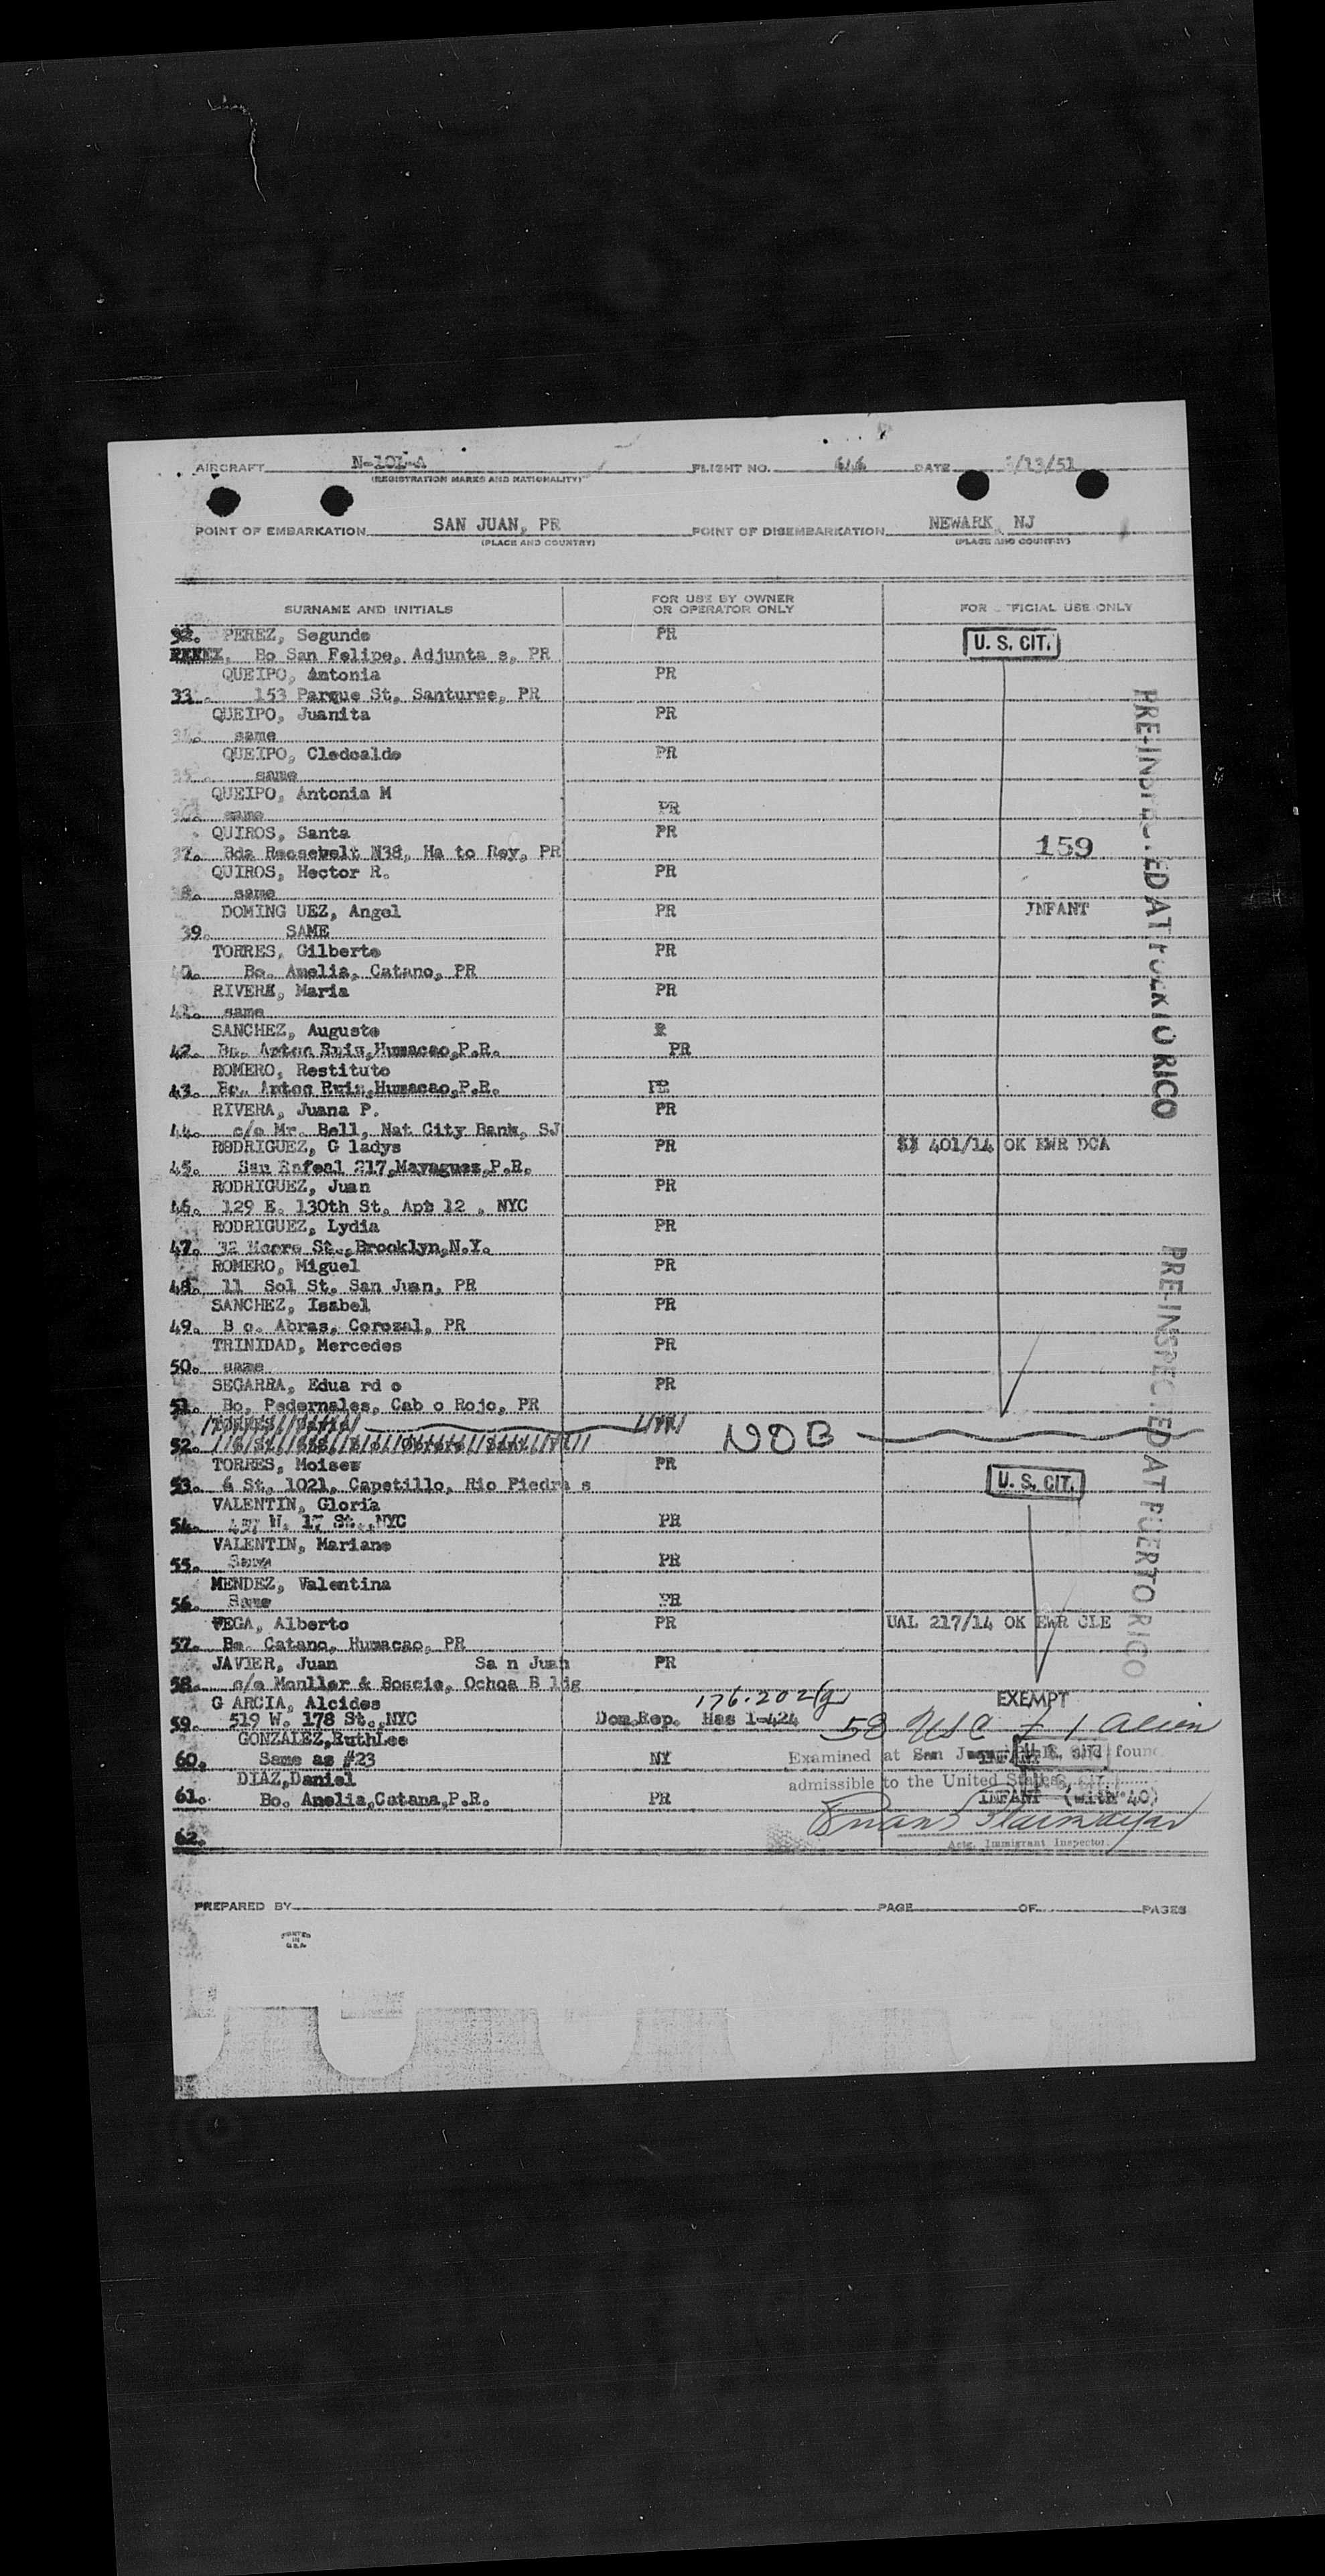 AIRCRAFT N-101-A FLIGHT NO. 646 DATE /13/51
(REGISTRATION MARKS AND NATIONALITY)
POINT OF EMBARKATION SAN JUAN, PR POINT OF DISEMBARKATION NEWARK NJ
(PLACE AND COUNTRY) (PLACE AND COUNTRY)
SURNAME AND INITIALS FOR USE BY OWNER OR OPERATOR ONLY FOR OFFICIAL USE ONLY
32. PEREZ, Segundo PR U. S. CIT.
Bo San Felipe, Adjunta s, PR
QUEIPO, Antonia PR
33. 153 Parque St, Santurce, PR
QUEIPO, Juanita PR
34. same
QUEIPO, Cledoaldo PR
35. same
QUEIPO, Antonia M
36. same PR
QUIROS, Santa PR
37. Bda Roosebelt N38, Ha to Rey, PR 159
QUIROS, Hector R. PR
38. same
DOMING UEZ, Angel PR INFANT
39. SAME
TORRES, Gilberto PR
40. Bo. Amelia, Catano, PR
RIVERA, Maria PR
41. same
SANCHEZ, Augusto
42. Bo. Anton Ruiz,Humacao,P.R. PR
ROMERO, Restituto
43. Bo. Anton Ruiz,Humacao,P.R. PR
RIVERA, Juana P. PR
44. c/o Mr. Bell, Nat City Bank, SJ
RODRIGUEZ, G ladys PR 401/14 OK EWR DCA
45. San Rafeal 217,Mayaguez,P.R.
RODRIGUEZ, Juan PR
46. 129 E. 130th St. Apt 12 . NYC
RODRIGUEZ, Lydia PR
47. 32 Moore St.,Brooklyn,N.Y.
ROMERO, Miguel PR
48. 11 Sol St. San Juan, PR
SANCHEZ, Isabel PR
49. B o. Abras, Corozal, PR
TRINIDAD, Mercedes PR
50. same
SEGARRA, Edua rd o PR
51. Bo. Pedernales, Cab o Rojo, PR
TORRES
52. NOB
TORRES, Moises PR
53. 6 St. 1021, Capetillo, Rio Piedra s U. S. CIT.
VALENTIN, Gloria
54. 457 W. 17 St.,NYC PR
VALENTIN, Mariano
55. Same PR
MENDEZ, Valentina
56. Same PR
VEGA, Alberto PR UAL 217/14 OK EWR CLE
57. Bo. Catano, Humacao, PR
JAVIER, Juan Sa n Juan PR
58. c/o Monller & Boscio, Ochoa B ldg
G ARCIA, Alcides 176.202(g) EXEMPT
59. 519 W. 178 St.,NYC Dom.Rep. Has I-424 58 USC + 1 Alien
GONZALEZ,RuthLee
60. Same as #23 NY Examined at San Juan, P.R. and found INFANT
DIAZ,Daniel admissible to the United States
61. Bo. Amelia,Catana,P.R. PR INFANT (with 40)
62.
Actg. Immigrant Inspector.
PRE-INSPECTED AT PUERTO RICO
PRE-INSPECTED AT PUERTO RICO
PREPARED BY PAGE OF PAGES
PRINTED
IN
U.S.A.